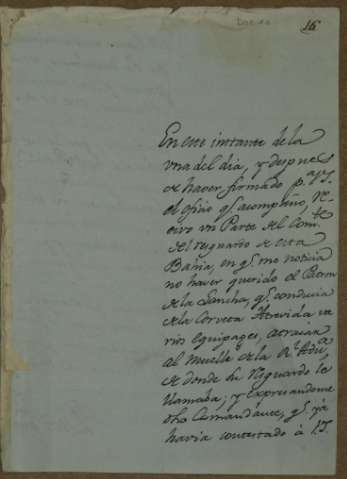 16
En este instante de la
una del dia, y despues
de haver firmado p.ª V.S.
el oficio q.e acompaño, re-
civo un Parte del Com.te
del resguardo de esta
Bahia, en q.e me noticia
no haver querido el Patron
de la Lancha, q.e conducia
de la Corveta Atrevida va
rios equipages, atracar
al Muelle de la R.l Adu.a
de donde su Resguardo le
llamaba; y expresandome
dho Comandante, q.e ya
havia contestado á V.S.